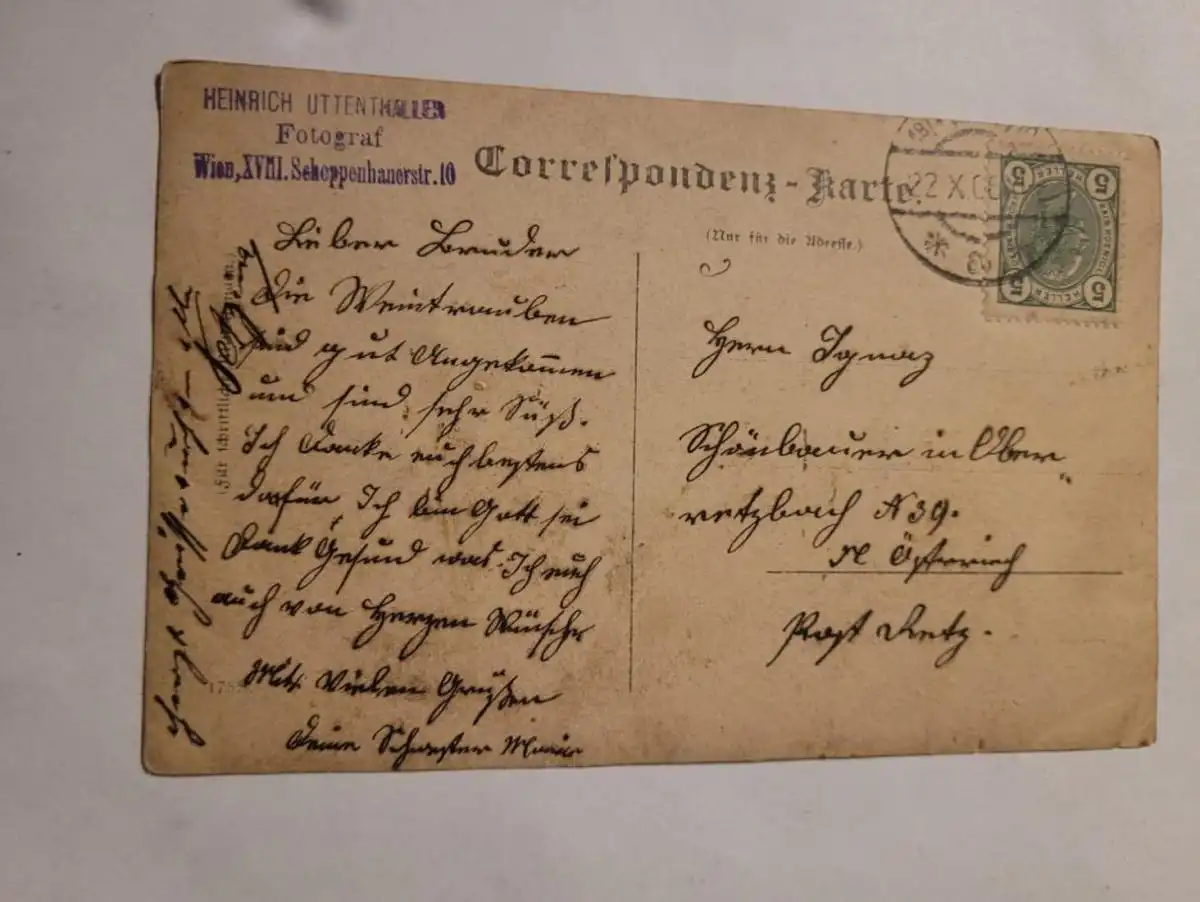 HEINRICH UTTENTHALLER
Fotograf
Wien, XVIII. Schoppenhauerstr. 10
Correspondenz-Karte.
(Nur für die Adresse.)
22 X 06
5 5
HELLER
5 5
Lieber Bruder
Die Weintrauben
sind gut Angekommen
und sind sehr Süß.
Ich Danke euch bestens
dafür, Ich bin Gott sei
Dank Gesund was Ich euch
auch von Herzen Wünsche
Mit Vielen Grüßen
Deine Schwester Marie
Herrn Ignaz
Schönbauer in Ober
retzbach N 39.
N Österreich
Post Retz.